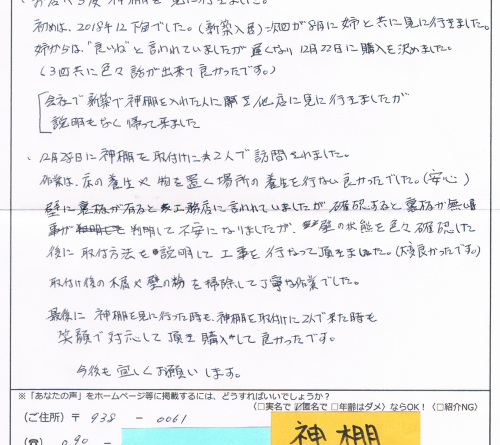 初めは、2018年12下旬でした。(新築入居)次回が8月に姉と共に見に行きました。
姉からは、"良いね"と言われていましたが遅くない12月22日に購入を決めました。
(3回共に色々話が出来て良かったです。)
会社で新築で神棚を入れた人に聞き他店に見に行きましたが
説明もなく帰って来ました
・12月28日に神棚を取付けに2人で訪問されました。
作業は、床の養生や物を置く場所の養生を行ない良かったでした。(安心)
壁に裏板が有ると工務店に言われていましたが確認すると裏板が無い
事が判明して不安になりましたが、壁の状態を色々確認した
後に取付方法を説明して工事を行なって頂きました。(大変良かったです)
取付け後の木屑や壁の粉を掃除して丁寧な作業でした。
最後に神棚を見に行った時も、神棚を取付けに2人で来た時も
笑顔で対応して頂き購入して良かったです。
今後も宜しくお願いします。
※「あなたの声」をホームページ等に掲載するには、どうすればいいでしょうか?
(□実名で ☑匿名で □年齢はダメ) ならOK! (□紹介NG)
(ご住所) 〒 938 - 0061
(☎) 090 -
神棚